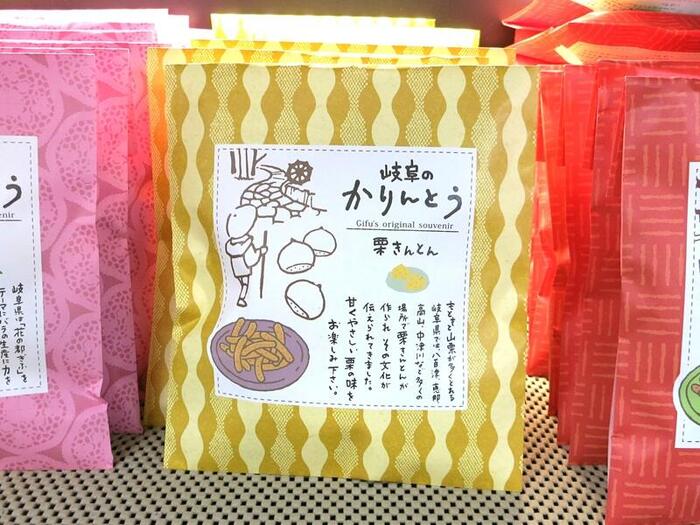 岐阜の
かりんとう
Gifu's original souvenir
栗きんとん
もともと山栗が多くとれる
岐阜県では八百津、恵那
高山、中津川など多くの
場所で栗きんとんが
作られ、その文化が
伝えられてきました。
甘くやさしい栗の味を
お楽しみ下さい。
う
enir
岐阜県は「花の都ぎふ」を
テーマにバラの生産に力を